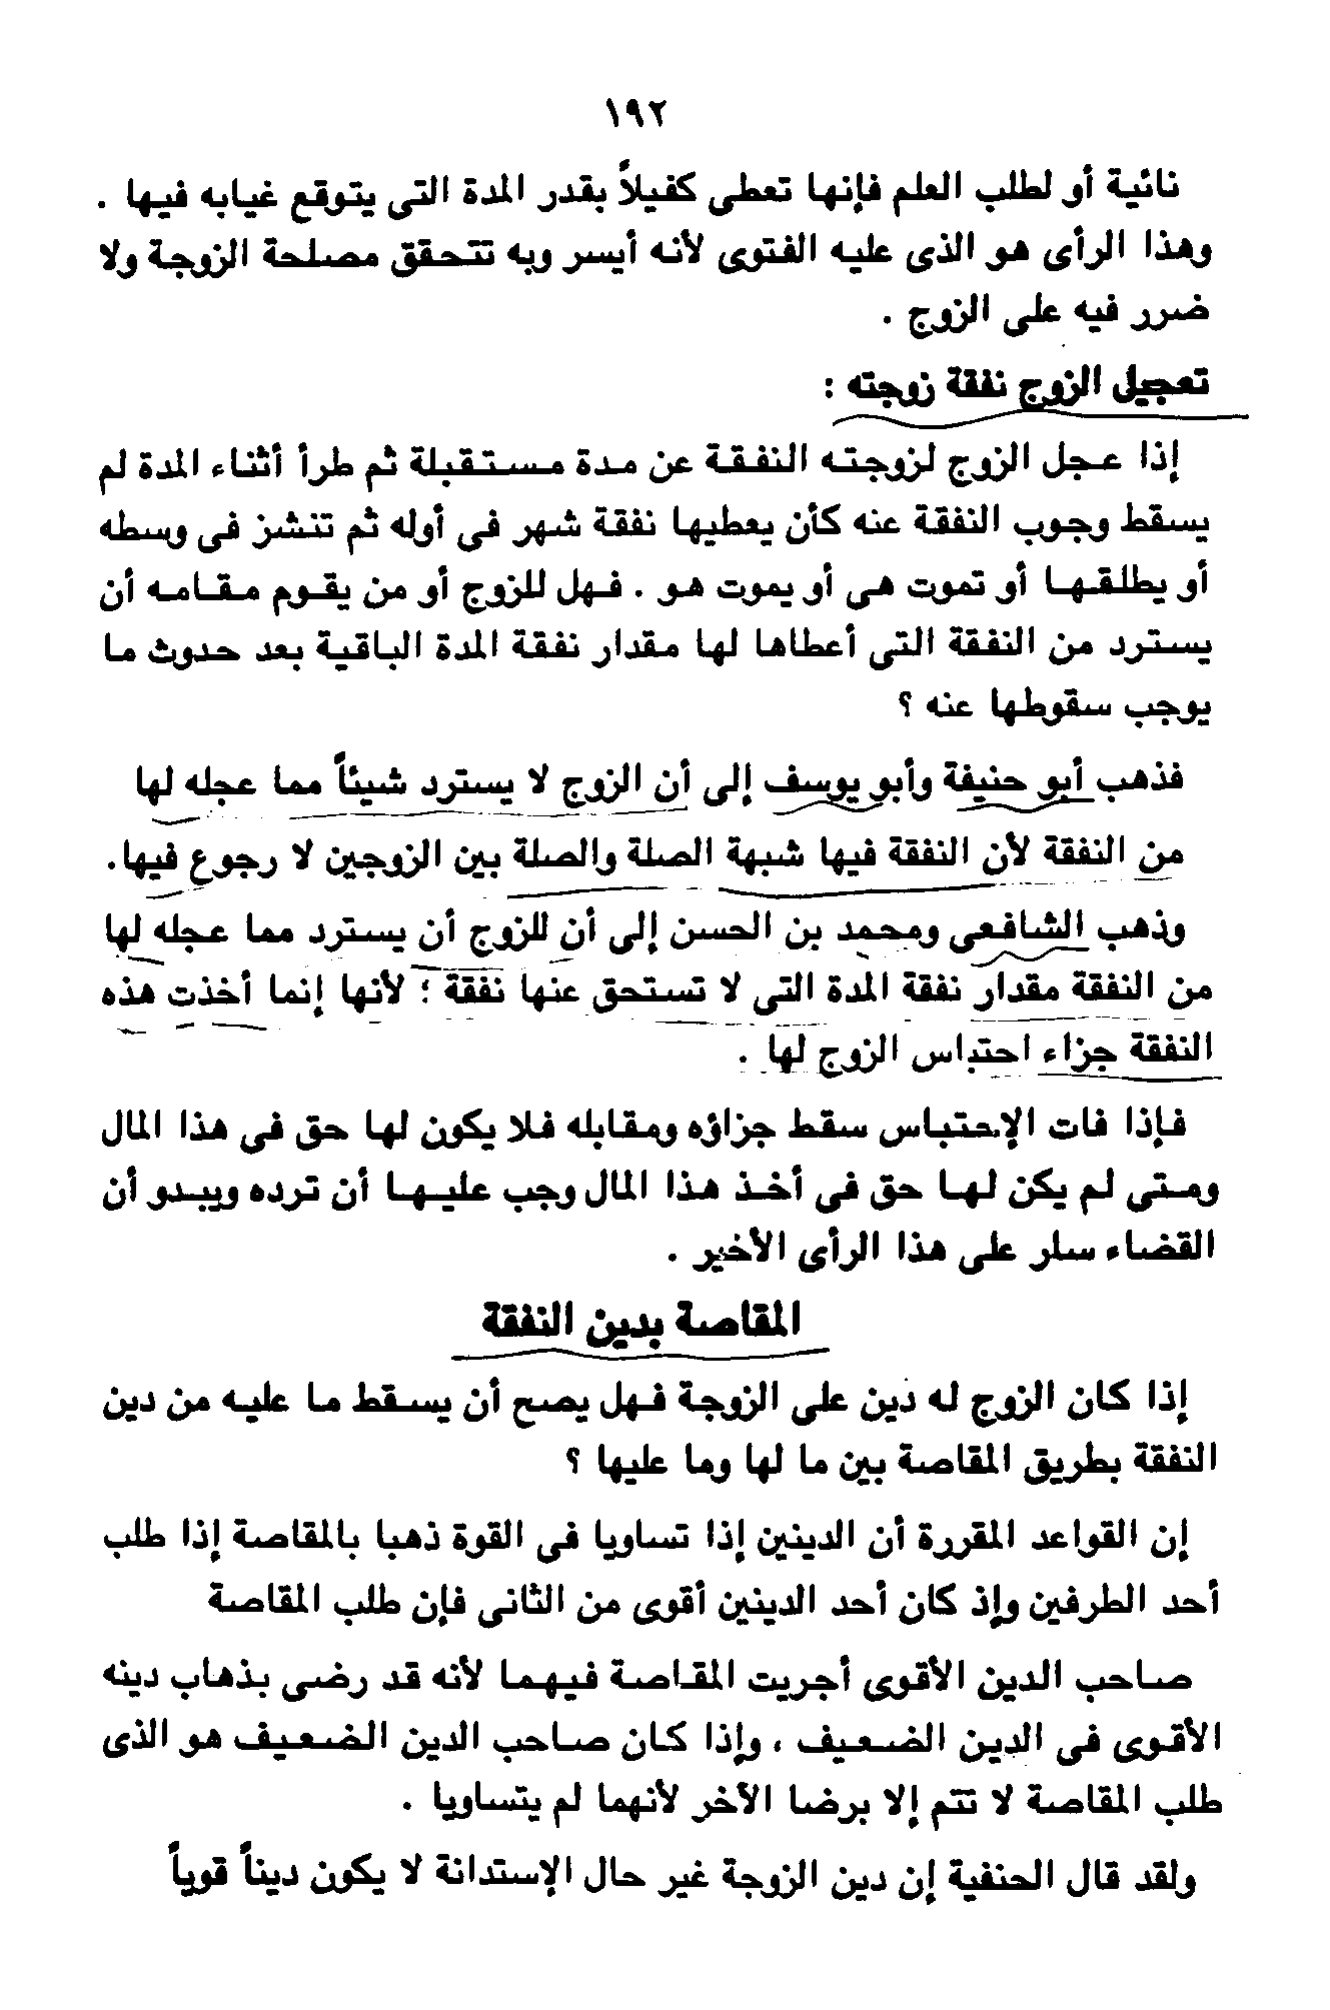 ١٩٢
نائية أو لطلب العلم فإنها تعطى كفيلاً بقدر المدة التى يتوقع غيابه فيها .
وهذا الرأى هو الذى عليه الفتوى لأنه أيسر وبه تتحقق مصلحة الزوجة ولا
ضرر فيه على الزوج .
تعجيل الزوج نفقة زوجته :
إذا عجل الزوج لزوجته النفقة عن مدة مستقبلة ثم طرأ أثناء المدة لم
يسقط وجوب النفقة عنه كأن يعطيها نفقة شهر فى أوله ثم تنشز فى وسطه
أو يطلقها أو تموت هى أو يموت هو . فهل للزوج أو من يقوم مقامه أن
يسترد من النفقة التى أعطاها لها مقدار نفقة المدة الباقية بعد حدوث ما
يوجب سقوطها عنه ؟
فذهب أبو حنيفة وأبو يوسف إلى أن الزوج لا يسترد شيئاً مما عجله لها
من النفقة لأن النفقة فيها شبهة الصلة والصلة بين الزوجين لا رجوع فيها.
وذهب الشافعى ومحمد بن الحسن إلى أن للزوج أن يسترد مما عجله لها
من النفقة مقدار نفقة المدة التى لا تستحق عنها نفقة ؛ لأنها إنما أخذت هذه
النفقة جزاء احتباس الزوج لها .
فإذا فات الإحتباس سقط جزاؤه ومقابله فلا يكون لها حق فى هذا المال
ومتى لم يكن لها حق فى أخذ هذا المال وجب عليها أن ترده ويبدو أن
القضاء سلر على هذا الرأى الأخير .
المقاصة بدين النفقة
إذا كان الزوج له دين على الزوجة فهل يصح أن يسقط ما عليه من دين
النفقة بطريق المقاصة بين ما لها وما عليها ؟
إن القواعد المقررة أن الدينين إذا تساويا فى القوة ذهبا بالمقاصة إذا طلب
أحد الطرفين وإذ كان أحد الدينين أقوى من الثانى فإن طلب المقاصة
صاحب الدين الأقوى أجريت المقاصة فيهما لأنه قد رضى بذهاب دينه
الأقوى فى الدين الضعيف ، وإذا كان صاحب الدين الضعيف هو الذى
طلب المقاصة لا تتم إلا برضا الآخر لأنهما لم يتساويا .
ولقد قال الحنفية إن دين الزوجة غير حال الإستدانة لا يكون ديناً قوياً